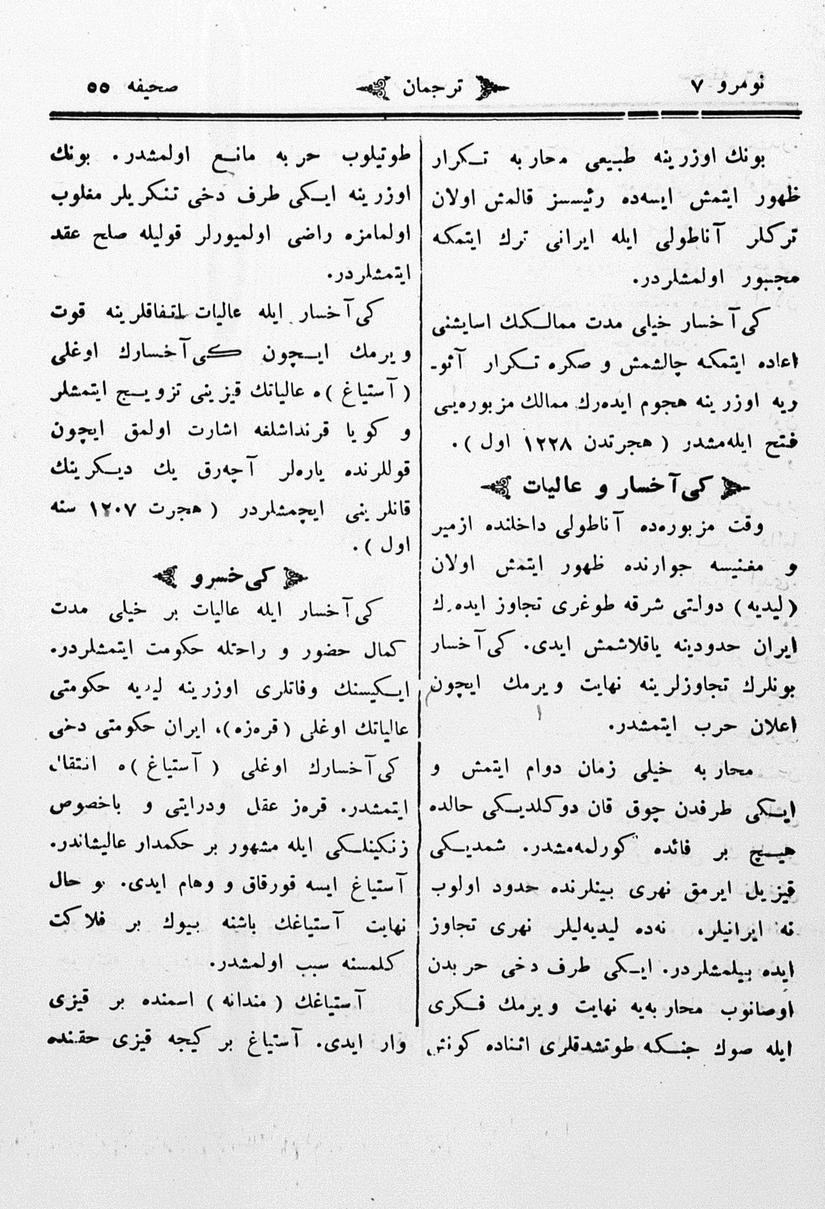 نومرو ٧
ترجمان
صحيفه ٥٥
بونك اوزرينه طبيعى محاربه تكرار
ظهور ايتمش ايسه‌ده رئيسسز قالمش اولان
تركلر آناطولى ايله ايرانى ترك ايتمكه
مجبور اولمشلردر.
كى‌آخسار خيلى مدت ممالكك اسايشنى
اعاده ايتمكه چالشمش و صكره تكرار آثو-
ريه اوزرينه هجوم ايده‌رك ممالك مزبوره‌يى
فتح ايله‌مشدر (هجرتدن ١٢٢٨ اول).
كى‌آخسار و عاليات
وقت مزبوره‌ده آناطولى داخلنده ازمير
و مغنيسه جوارنده ظهور ايتمش اولان
(ليديه) دولتى شرقه طوغرى تجاوز ايده‌رك
ايران حدودينه ياقلاشمش ايدى. كى‌آخسار
بونلرك تجاوزلرينه نهايت ويرمك ايچون
اعلان حرب ايتمشدر.
محاربه خيلى زمان دوام ايتمش و
ايكى طرفدن چوق قان دوكلديكى حالده
هيچ بر فائده كورلمه‌مشدر. شمديكى
قيزيل ايرمق نهرى بينلرنده حدود اولوب
نه ايرانيلر، نه‌ده ليديه‌ليلر نهرى تجاوز
ايده بيلمشلردر. ايكى طرف دخى حربدن
اوصانوب محاربه‌يه نهايت ويرمك فكرى
ايله صوك جنكه طوتشدقلرى اثناده كونش
طوتيلوب حربه مانع اولمشدر. بونك
اوزرينه ايكى طرف دخى تنكريلر مغلوب
اولمامزه راضى اولميورلر قوليله صلح عقد
ايتمشلردر.
كى‌آخسار ايله عاليات اتفاقلرينه قوت
ويرمك ايچون كى‌آخسارك اوغلى
(آستياغ)ه عالياتك قيزينى تزويج ايتمشلر
و كويا قرنداشلغه اشارت اولمق ايچون
قوللرنده ياره‌لر آچه‌رق يك ديكرينك
قانلرينى ايچمشلردر (هجرت ١٢٠٧ سنه
اول).
كى‌خسرو
كى‌آخسار ايله عاليات بر خيلى مدت
كمال حضور و راحتله حكومت ايتمشلردر.
ايكيسنك وفاتلرى اوزرينه ليديه حكومتى
عالياتك اوغلى (قره‌زه)، ايران حكومتى دخى
كى‌آخسارك اوغلى (آستياغ)ه انتقال
ايتمشدر. قره‌ز عقل ودرايتى و باخصوص
زنكينلكى ايله مشهور بر حكمدار عاليشاندر.
آستياغ ايسه قورقاق و وهام ايدى. بو حال
نهايت آستياغك باشنه بيوك بر فلاكت
كلمسنه سبب اولمشدر.
آستياغك (مندانه) اسمنده بر قيزى
وار ايدى. آستياغ بر كيجه قيزى حقنده